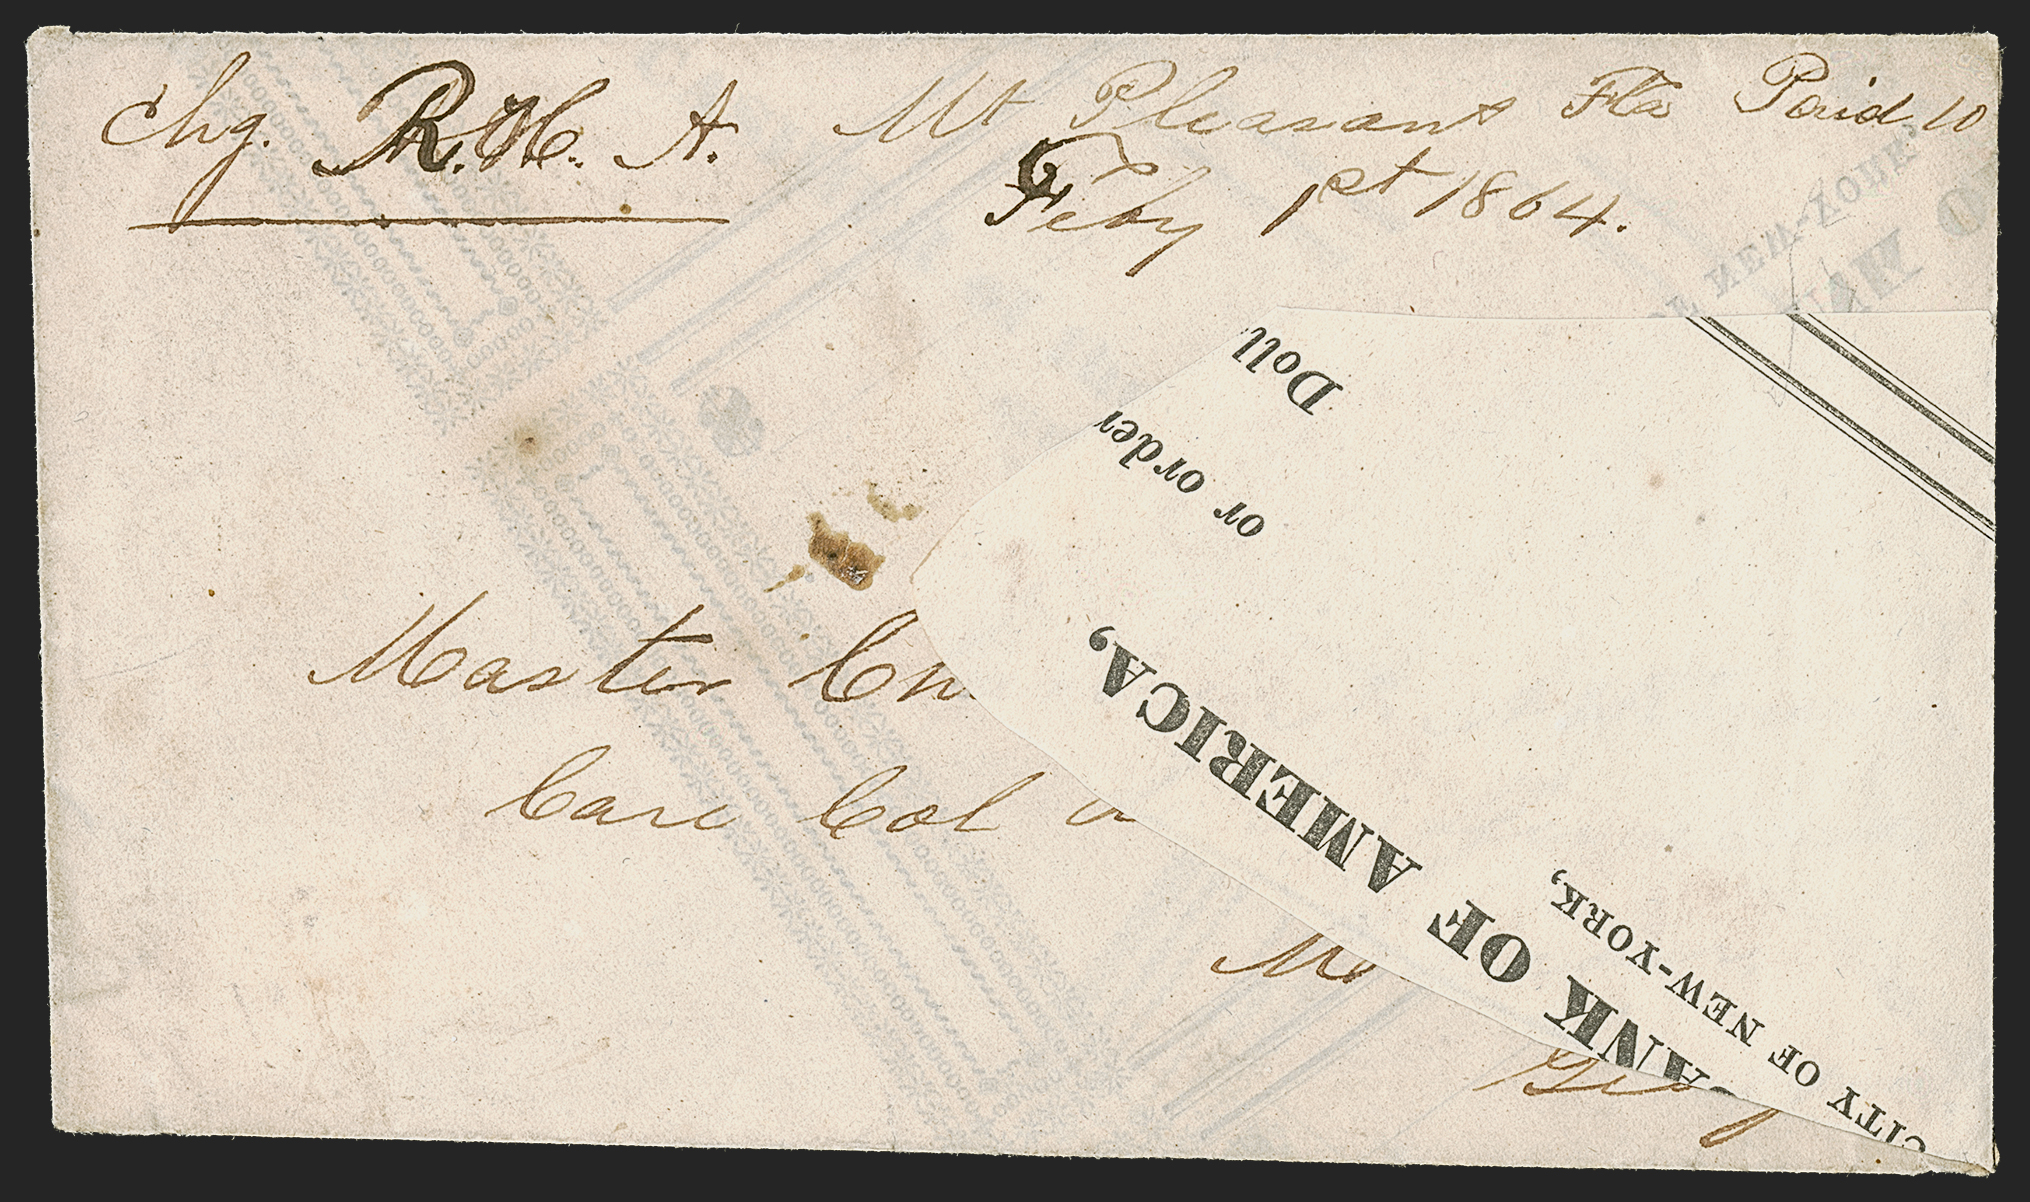 chg. R. H. A. Mt Pleasant Fla Paid 10
Feby 1st 1864.
OF NEW-YORK,
NK OF
Doll
or order
Master
Care Col
AMERICA,
BANK OF
CITY OF NEW-YORK,